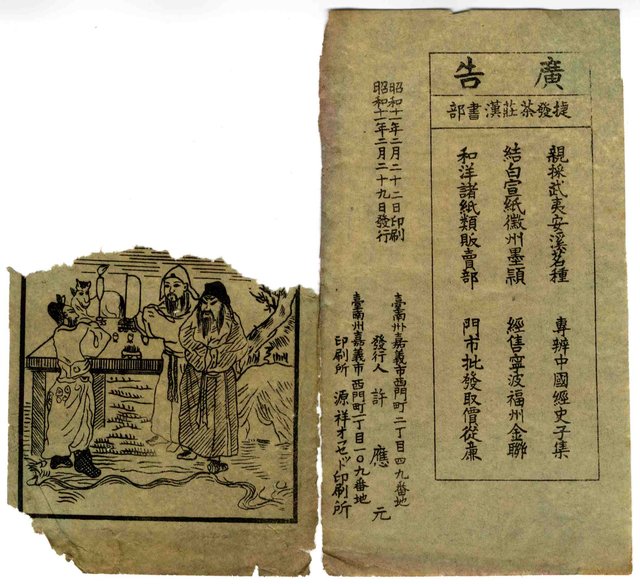 廣告
捷發茶莊漢書部
親採武夷安溪茗種 專辦中國經史子集
結白宣紙徽州墨頴 經售寧波福州金聯
和洋諸紙類販賣部 門市批發取價從廉
昭和十一年二月二十二日印刷
昭和十一年二月二十九日發行
臺南州嘉義市西門町二丁目四九番地
發行人 許應元
臺南州嘉義市西門町二丁目一〇九番地
印刷所 源祥オフセット印刷所